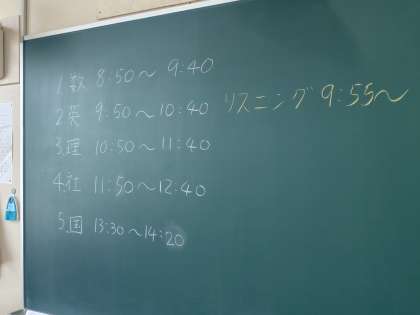 1.数 8:50～ 9:40
2.英 9:50～10:40 リスニング 9:55～
3.理 10:50～11:40
4.社 11:50～12:40
5.国 13:30～14:20